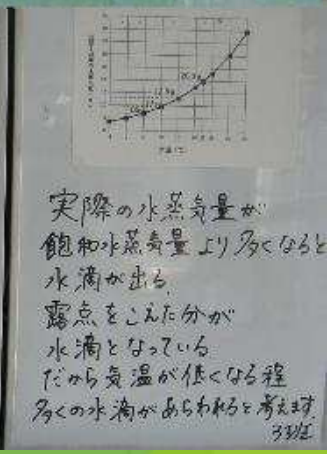 実際の水蒸気量が
飽和水蒸気量より多くなると
水滴が出る
露点をこえた分が
水滴となっている
だから気温が低くなる程
多くの水滴があらわれると考えます
3班